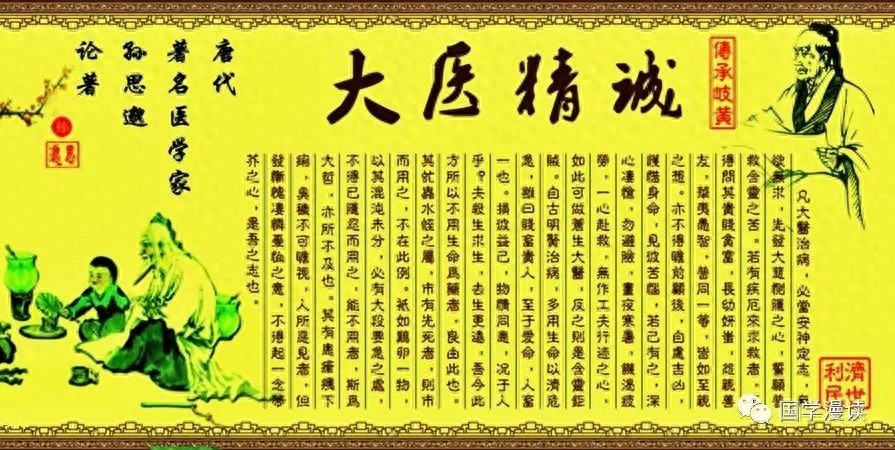 唐代
著名医学家
孙思邈
论著
大医精诚
傳承岐黄
凡大醫治病，必當安神定志，無
欲無求，先發大慈惻隱之心，誓願普
救含靈之苦。若有疾厄來求救者，不
得問其貴賤貧富，長幼妍蚩，怨親善
友，華夷愚智，普同一等，皆如至親
之想。亦不得瞻前顧後，自慮吉凶，
護惜身命，見彼苦惱，若己有之，深
心凄愴，勿避險，晝夜寒暑，饑渴疲
勞，一心赴救，無作工夫行迹之心，
如此可做蒼生大醫，反之則是含靈鉅
賊。自古明醫治病，多用生命以濟危
急，雖曰賤畜貴人，至于愛命，人畜
一也。損彼益己，物情同患，况于人
乎？夫殺生求生，去生更遠，吾今此
方所以不用生命爲藥者，良由此也。
其虻蟲水蛭之屬，市有先死者，則市
而用之，不在此例。衹如鷄卵一物，
以其混沌未分，必有大段要急之處，
不得已隱忍而用之，能不用者，斯爲
大哲，亦所不及也。其有患瘡痍下
痢，臭穢不可瞻視，人所惡見者，但
發慚愧凄憐憂恤之意，不得起一念蒂
芥之心，是吾之志也。
濟世利民
国学漫读